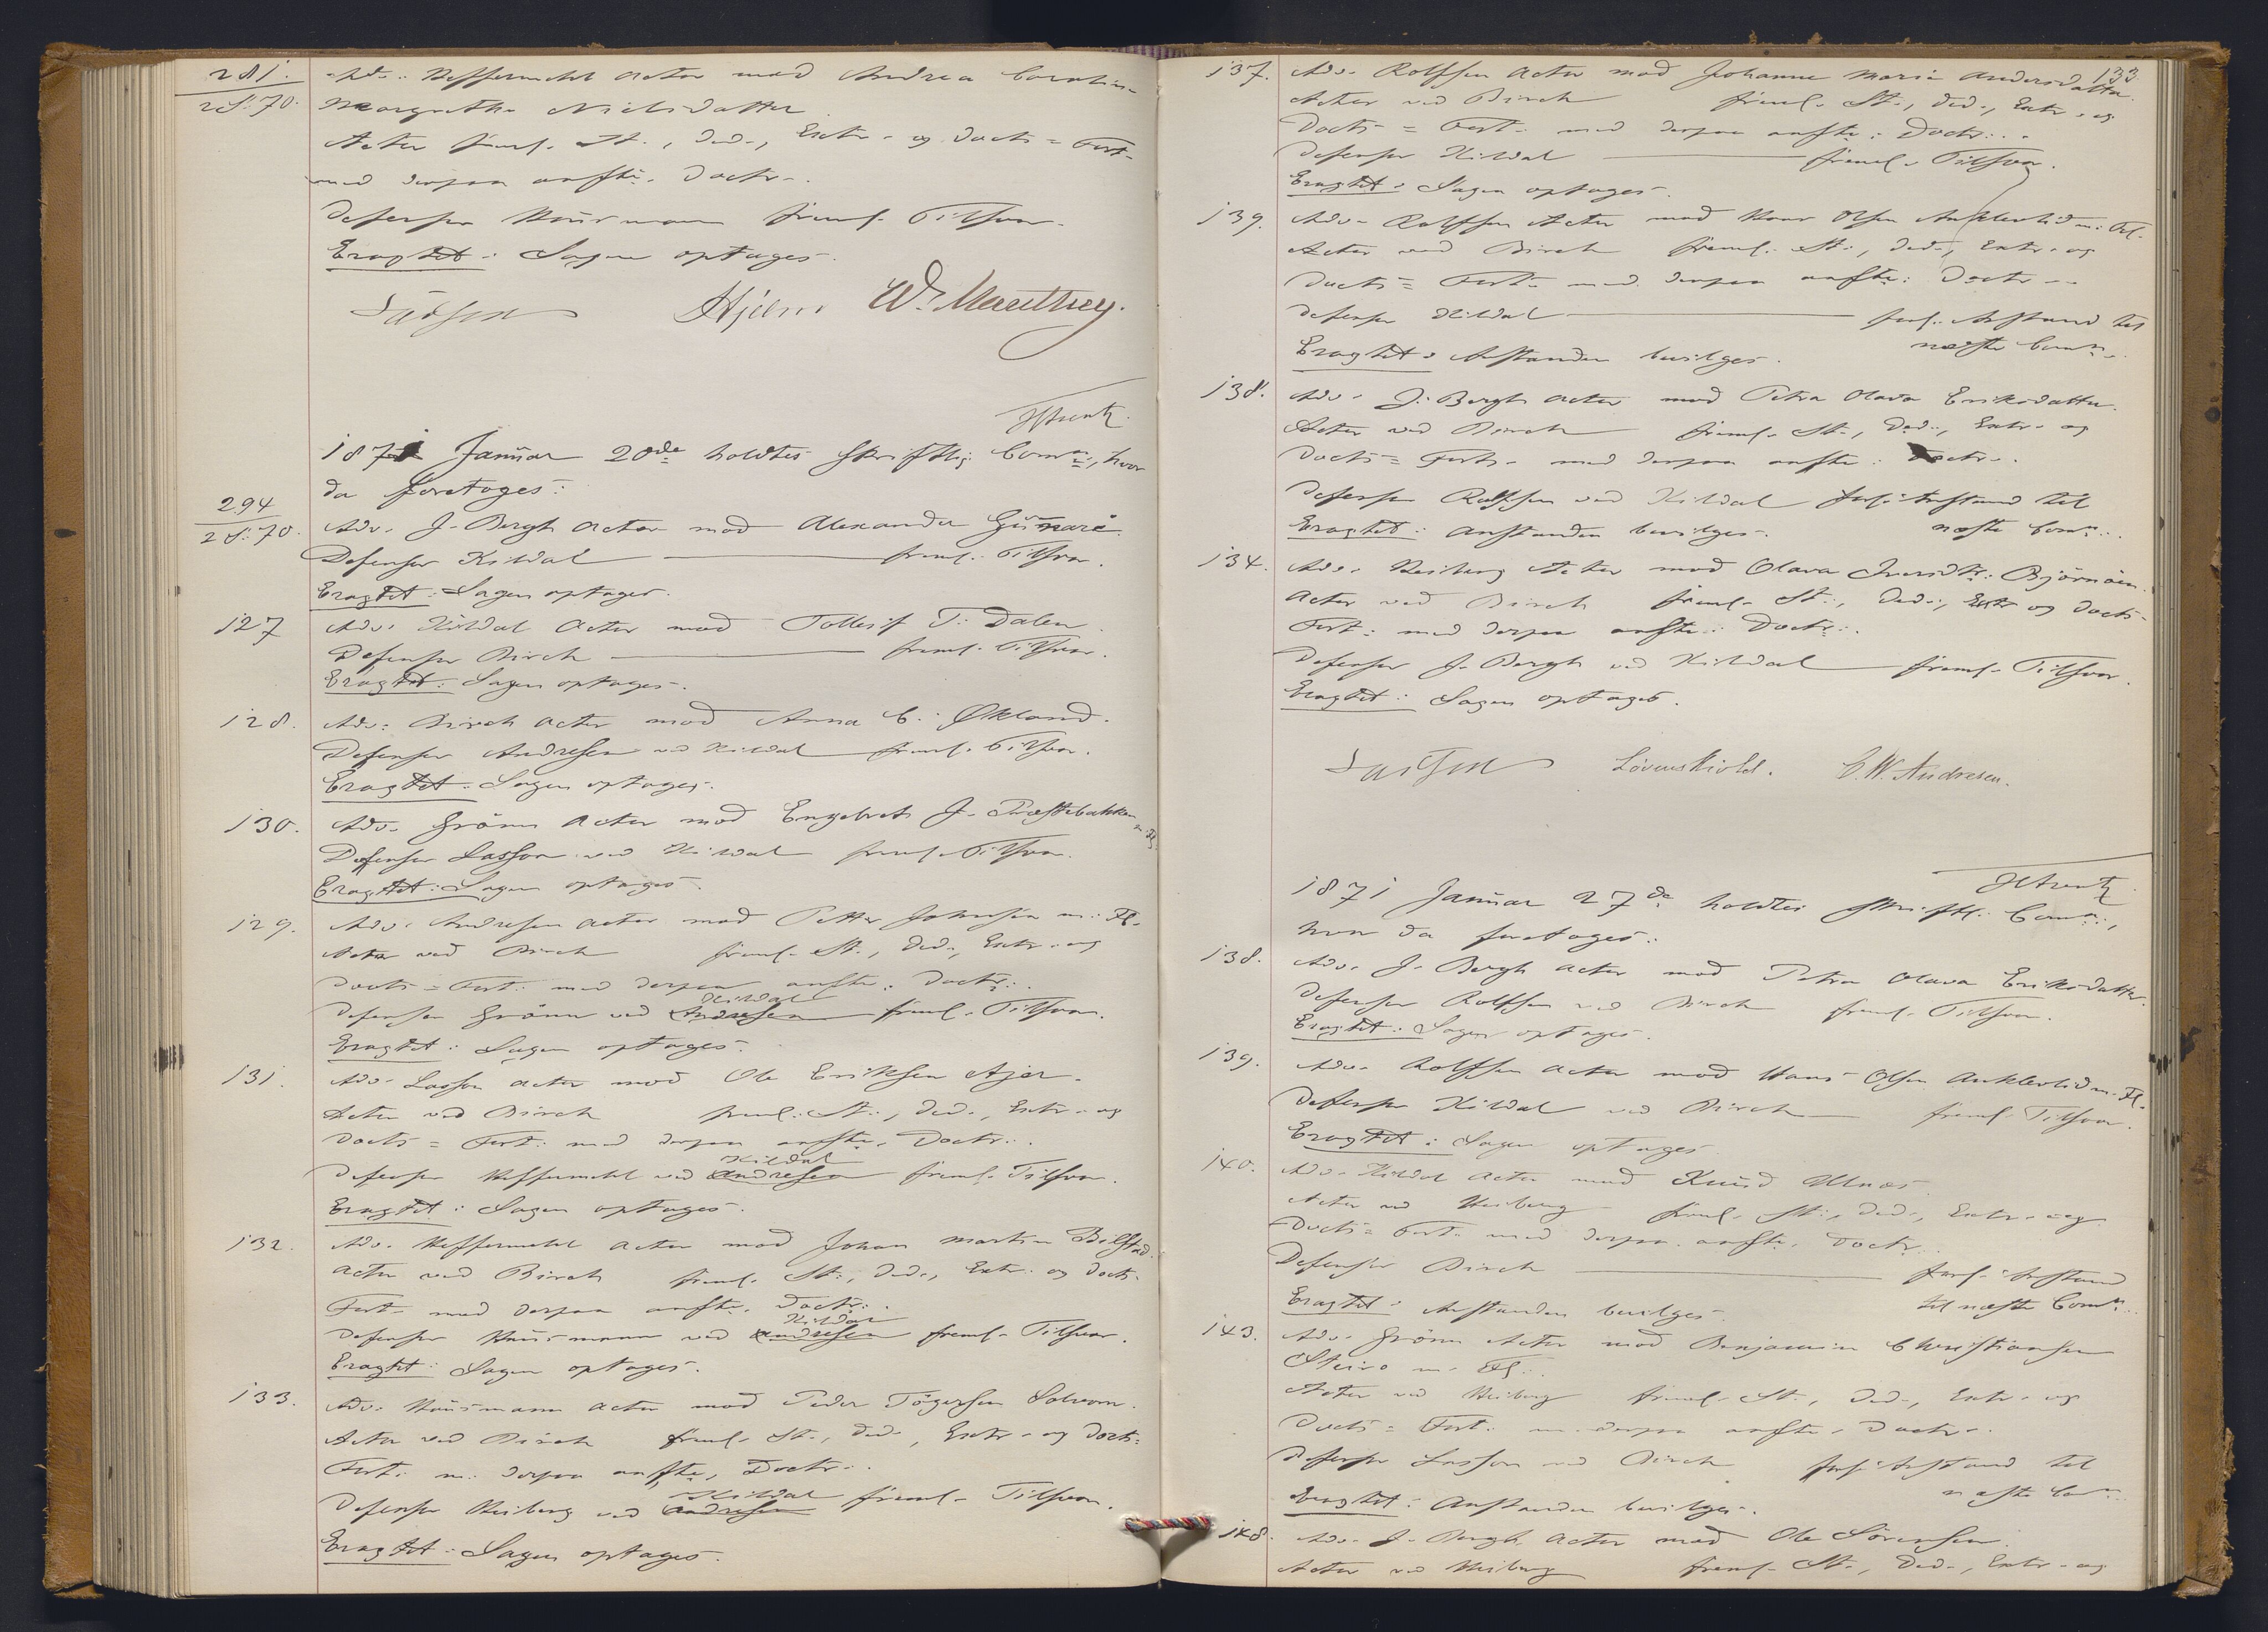 281.
2 S. 70.
Adv. Heffermehl Actor mod Andrea Caroline
Margrethe Nielsdatter
Acter freml. St., Ded., Extr. og Docts=Fort.
med derpaa anfte. Doctr.
Defensor Hausmann freml. Tilsvar.
Eragtet: Sagen optages.
Hjelm W. Manthey.
1871 Januar 20de holdtes skriftlig Comn., hvor
da foretoges:
294
2 S. 70.
Adv. J. Bergh Actor mod Alexander
Defensor Kildal freml. Tilsvar.
Eragtet: Sagen optages.
127
Adv. Kildal Actor mod Tollef T. Dalen.
Defensor Birch freml. Tilsvar.
Eragtet: Sagen optages.
128.
Adv. Birch Actor mod Anna C. Økland.
Defensor Andresen ved Kildal freml. Tilsvar.
Eragtet: Sagen optages.
130.
Adv. Grönn Actor mod Engebret J. Præstebakken m. Fl.
Defensor Lasson ved Kildal freml. Tilsvar.
Eragtet: Sagen optages.
129.
Adv. Andresen Actor mod Petter Johnsen m. Fl.
Actor ved Birch freml. St., Ded., Extr. og
Docts=Fort. med derpaa anfte. Doctr.
Kildal
Defensor Grönn ved Andresen freml. Tilsvar.
Eragtet: Sagen optages.
131.
Adv. Lasson Actor mod Ole Eriksen Ajer.
Actor ved Birch freml. St., Ded., Extr. og
Docts=Fort. med derpaa anfte. Doctr.
Kildal
Defensor Heffermehl ved Andresen freml. Tilsvar.
Eragtet: Sagen optages.
132.
Adv. Heffermehl Actor mod Johan Martin Bilstad.
Actor ved Birch freml. St., Ded., Extr. og Docts=
Fort. med derpaa anfte. Doctr.
Kildal
Defensor Hausmann ved Andresen freml. Tilsvar.
Eragtet: Sagen optages.
133.
Adv. Hausmann Actor mod Peder Tögersen Solvorn.
Actor ved Birch freml. St., Ded., Extr. og Docts=
Fort. m. derpaa anfte. Doctr.
Kildal
Defensor Heiberg ved Andresen freml. Tilsvar.
Eragtet: Sagen optages.
133.
137.
Adv. Rolfsen Actor mod Johanne Maria Andersdatter.
Actor ved Birch freml. St., Ded., Extr. og
Docts=Fort. med derpaa anfte. Doctr.
Defensor Kildal freml. Tilsvar.
Eragtet: Sagen optages.
139.
Adv. Rolfsen Actor mod Hans Olsen Anklevlid m. Fl.
Actor ved Birch freml. St., Ded., Extr. og
Docts=Fort. med derpaa anfte. Doctr.
Defensor Kildal forl. Anstand til
næste Comn.
Eragtet: Anstanden bevilges.
138.
Adv. J. Bergh Actor mod Petra Olava Eriksdatter.
Actor ved Birch freml. St., Ded., Extr. og
Docts=Fort. med derpaa anfte. Doctr.
Defensor Rolfsen ved Kildal forl. Anstand til
næste Comn.
Eragtet: Anstanden bevilges.
134.
Adv. Heiberg Actor mod Olava Iversdtr. Björnöen.
Actor ved Birch freml. St., Ded., Extr. og Docts=
Fort. med derpaa anfte. Doctr.
Defensor J. Bergh ved Kildal freml. Tilsvar.
Eragtet: Sagen optages.
Løvenskiold. C. W. Andresen.
1871 Januar 27de holdtes skriftl. Comn.,
hvor da foretoges:
138.
Adv. J. Bergh Actor mod Petra Olava Eriksdatter.
Defensor Rolfsen ved Birch freml. Tilsvar.
Eragtet: Sagen optages.
139.
Adv. Rolfsen Actor mod Hans Olsen Anklevlid m. Fl.
Defensor Kildal ved Birch freml. Tilsvar.
Eragtet: Sagen optages
140.
Adv. Kildal Actor mod Knud Ulnæs.
Actor ved Heiberg freml. St., Ded., Extr. og
Docts=Fort. med derpaa anfte. Doctr.
Defensor Birch forl. Anstand
til næste Comn.
Eragtet: Anstanden bevilges.
143.
Adv. Grönn Actor mod Benjamin Christiansen
Steiro m. Fl.
Actor ved Heiberg freml. St., Ded., Extr. og
Docts=Fort. m. derpaa anfte. Doctr.
Defensor Lasson ved Birch forl. Anstand til
næste Comn.
Eragtet: Anstanden bevilges.
148.
Adv. J. Bergh Actor mod Ole Sörensen.
Actor ved Heiberg freml. St., Ded., Extr. og